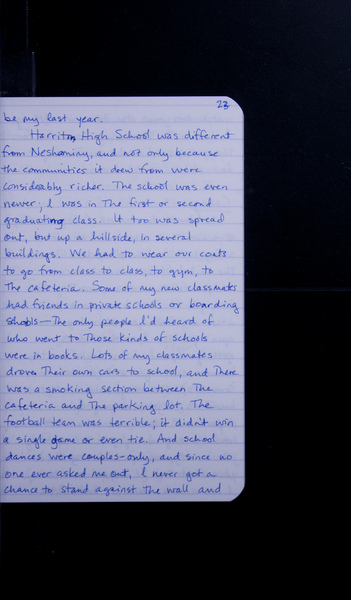 23
be my last year.
Harriton High School was different
from Neshaminy, and not only because
the communities it drew from were
considerably richer. The school was even
newer; I was in the first or second
graduating class. It too was spread
out, but up a hillside, in several
buildings. We had to wear our coats
to go from class to class, to gym, to
the cafeteria. Some of my new classmates
had friends in private schools or boarding
schools—the only people I'd heard of
who went to those kinds of schools
were in books. Lots of my classmates
drove their own cars to school, and there
was a smoking section between the
cafeteria and the parking lot. The
football team was terrible; it didn't win
a single game or even tie. And school
dances were couples-only, and since no
one ever asked me out, I never got a
chance to stand against the wall and